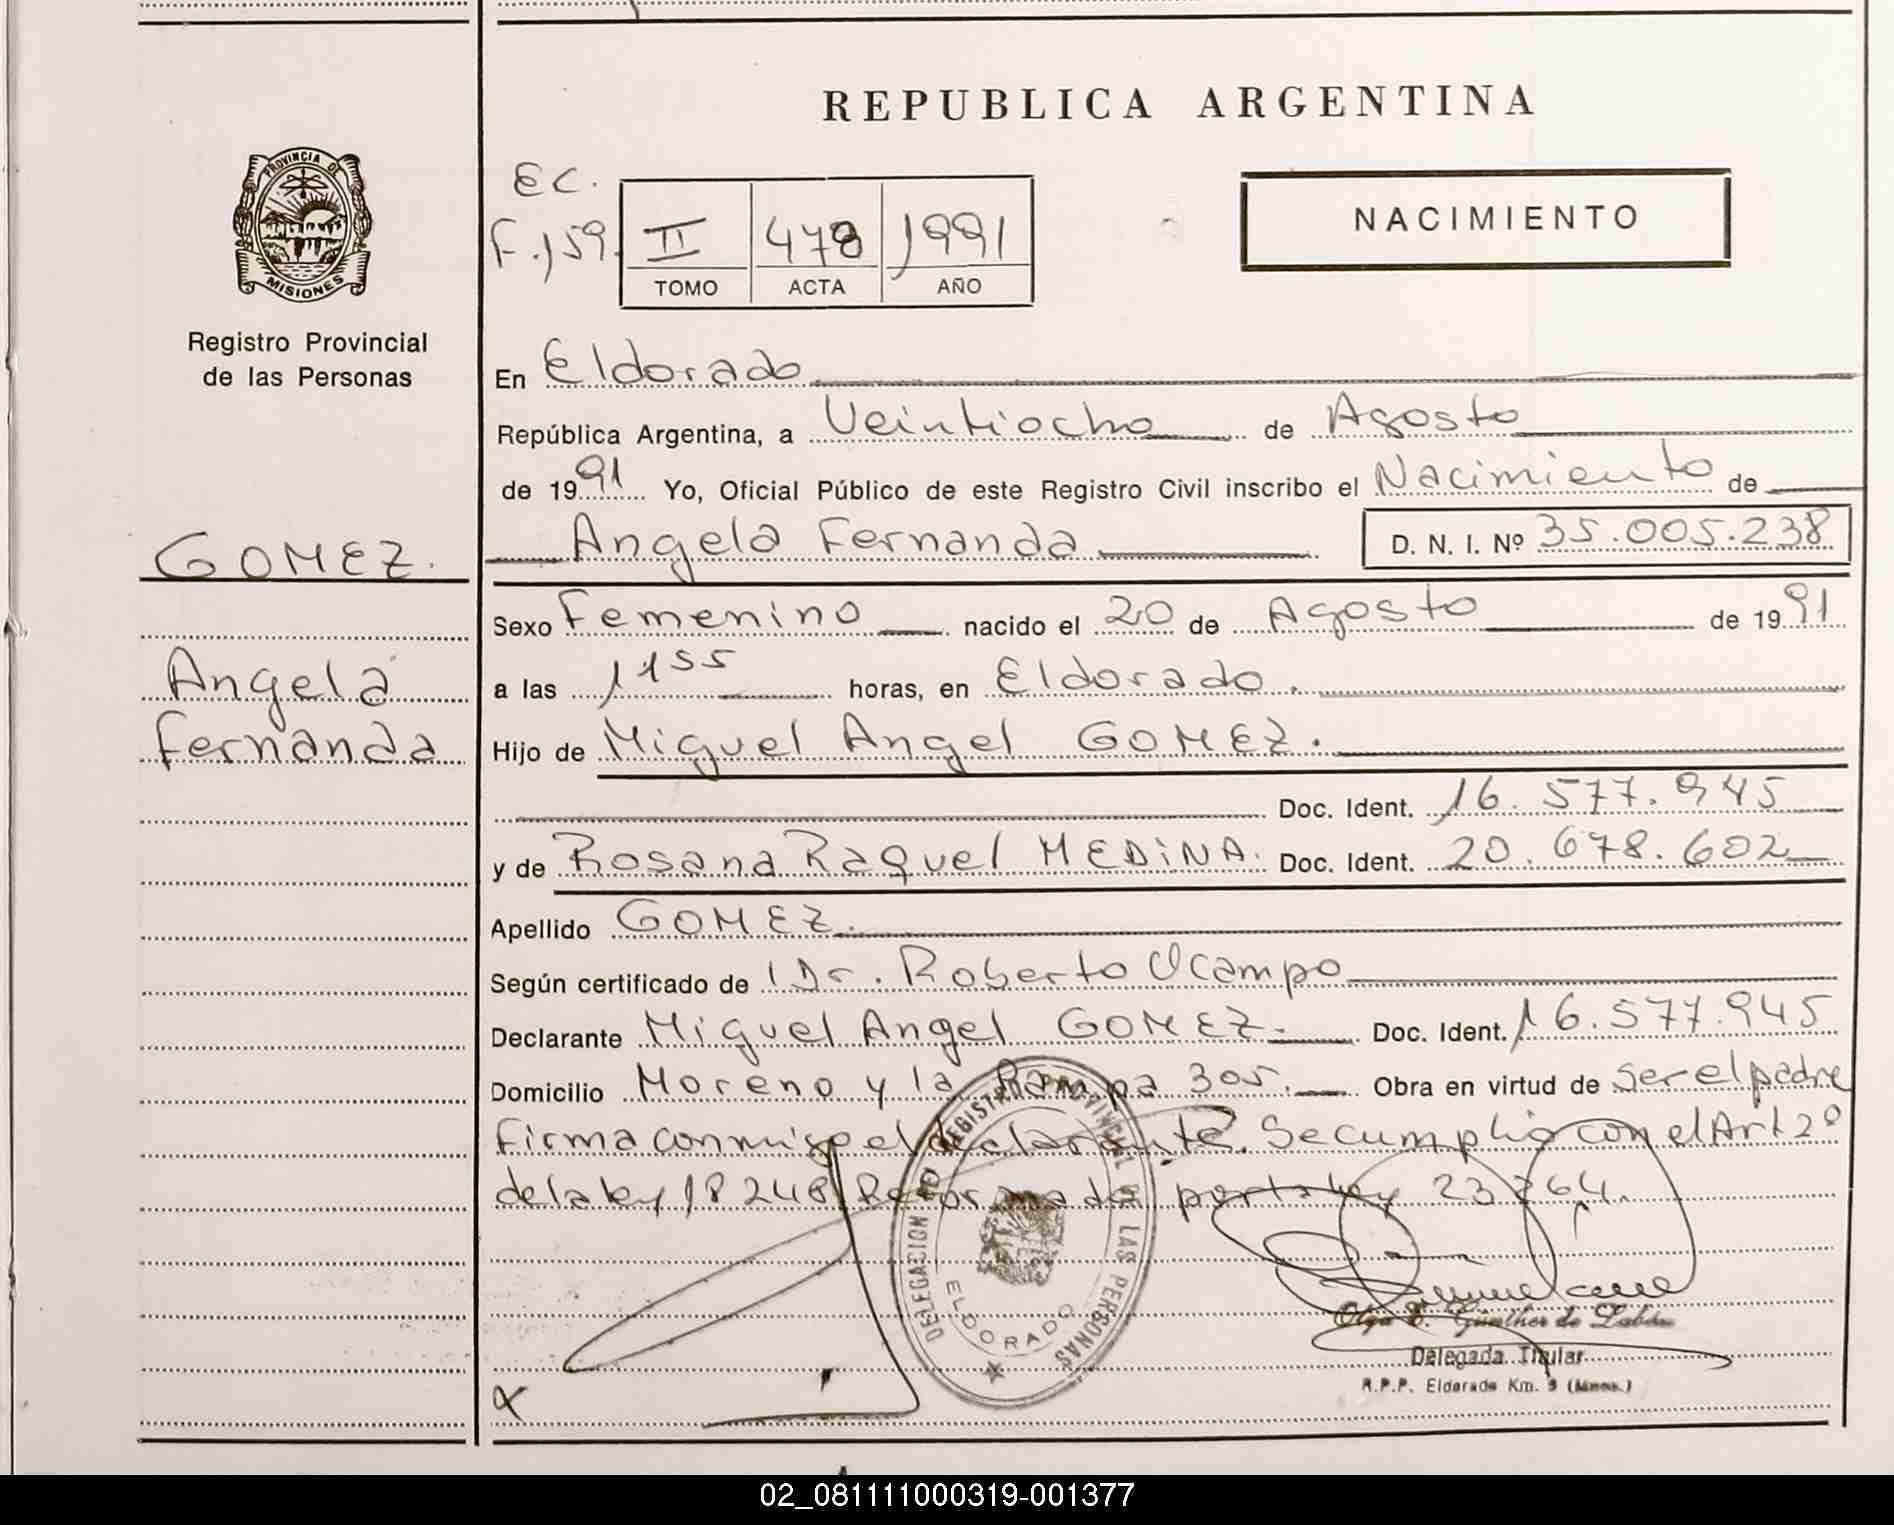 REPUBLICA ARGENTINA
PROVINCIA DE
MISIONES
Registro Provincial
de las Personas
EC.
F. 159.
II
TOMO
478
ACTA
1991
AÑO
NACIMIENTO
En Eldorado
República Argentina, a Veintiocho de Agosto
de 1991 Yo, Oficial Público de este Registro Civil inscribo el Nacimiento de
GOMEZ.
Angela Fernanda D. N. I. Nº 35.005.238
Sexo Femenino nacido el 20 de Agosto de 1991
Angela
Fernanda
a las 1155 horas, en Eldorado.
Hijo de Miguel Angel GOMEZ.
Doc. Ident. 16.577.945
y de Rosana Raquel MEDINA. Doc. Ident. 20.678.602
Apellido GOMEZ.
Según certificado de Dr. Roberto Ocampo
Declarante Miguel Angel GOMEZ. Doc. Ident. 16.577.945
Domicilio Moreno y la Pampa 305. Obra en virtud de ser el padre
Firma conmigo el declarante. Se cumplió con el Art 2º
de la ley 18248 Reformada por la ley 23264.
DELEGACION DEL REGISTRO PROVINCIAL DE LAS PERSONAS
ELDORADO
Olga E. Günther de Labán
Delegada Titular
R.P.P. Eldorado Km. 9 (Mnes.)
X
02_081111000319-001377